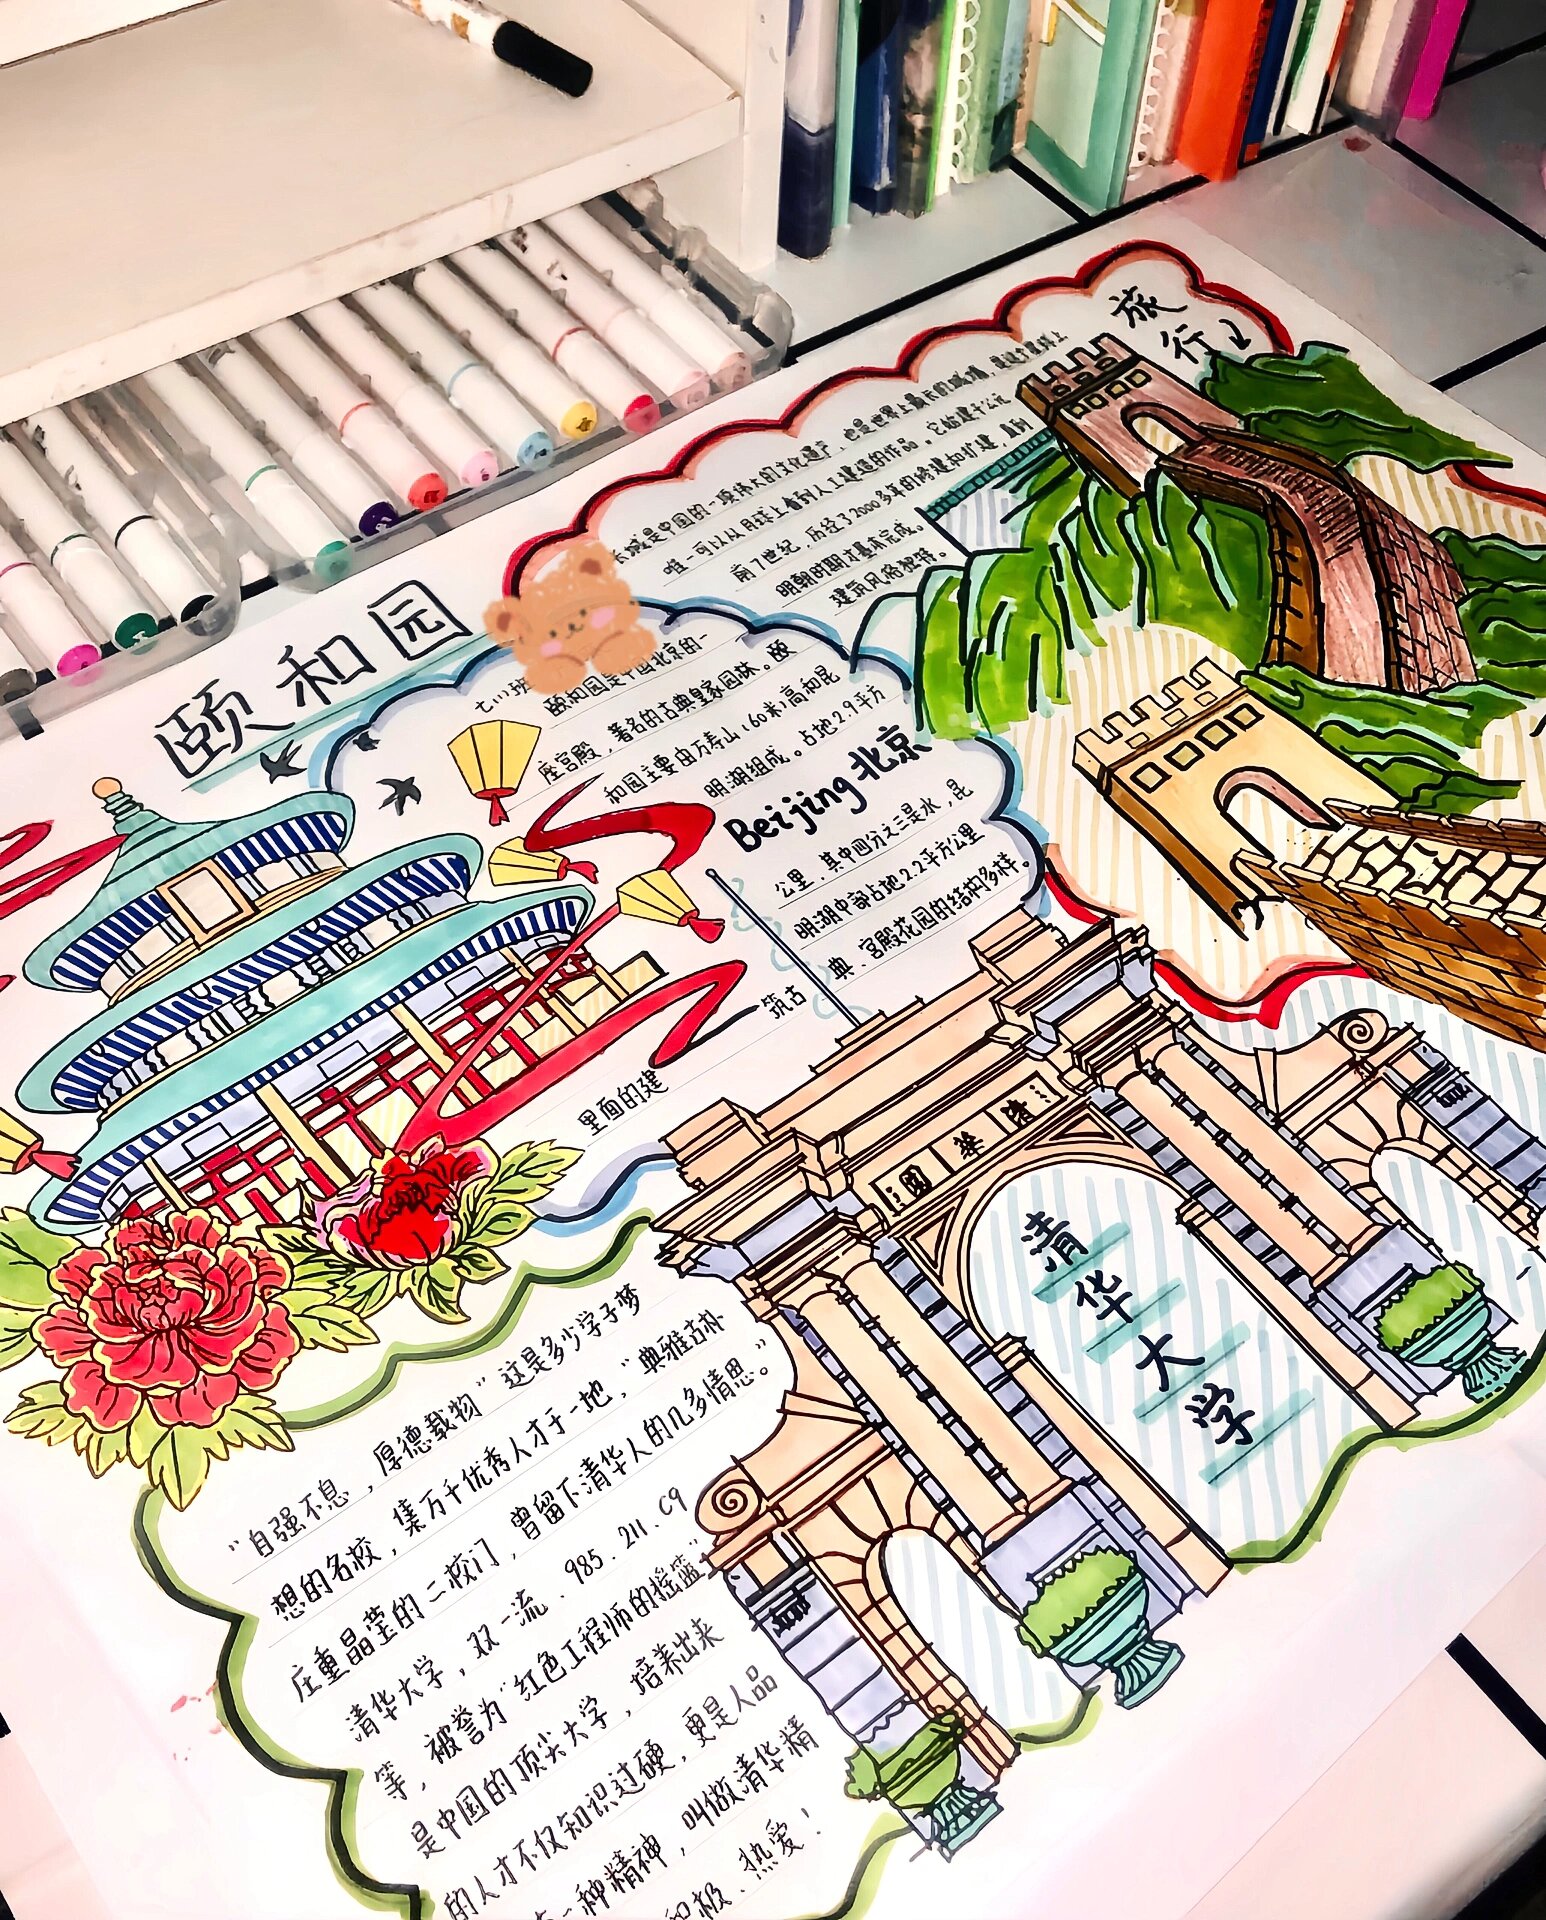 旅
行
长城是中国的一项伟大的文化遗产，也是世界上最长的城墙，是这个星球上
唯一可以从月球上看到人工建造的作品。它始建于公元
前7世纪，历经了2000多年的修建和扩建，直到
明朝时期才基本完成。
建筑风格独特。
颐和园
七(1)班
颐和园是中国北京的一
座宫殿，著名的古典皇家园林。颐
和园主要由万寿山(60米)高和昆
明湖组成。占地2.9平方
Beijing北京
公里，其中四分之三是水，昆
明湖中部占地2.2平方公里
典、宫殿花园的结构多样。
筑古
里面的建
清華園
清华大学
"自强不息，厚德载物"这是多少学子梦
想的名校，集万千优秀人才于一地，"典雅古朴
庄重晶莹的二校门，曾留下清华人的几多情思。"
清华大学，双一流、985、211、C9
等，被誉为"红色工程师的摇篮"
是中国的顶尖大学，培养出来
的人才不仅知识过硬，更是人品
一种精神，叫做清华精
和极、热爱！